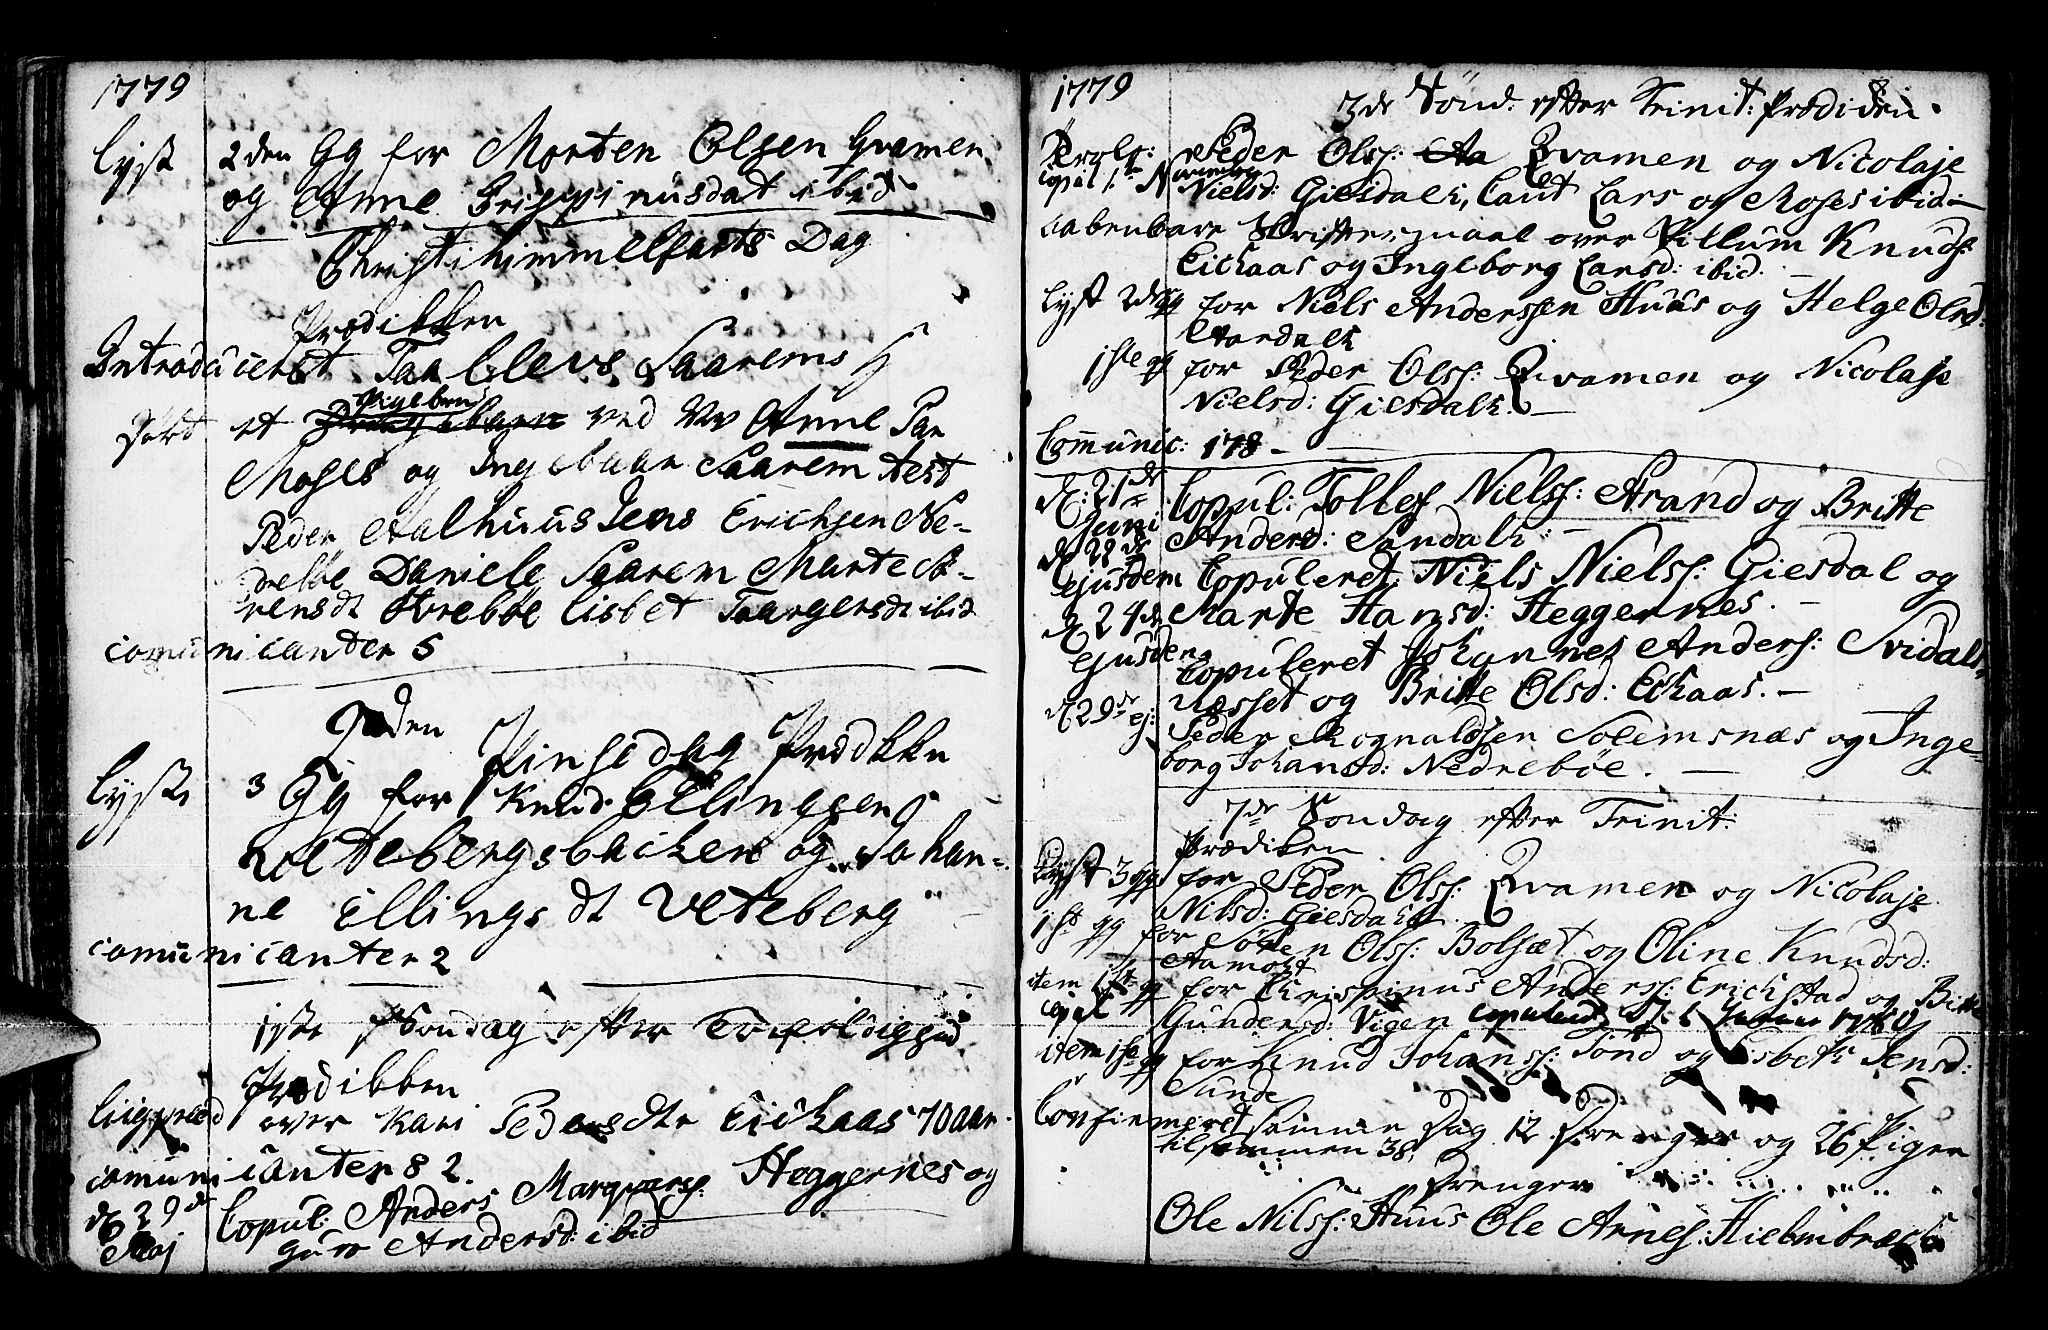 1779
lyst 2den Gg for Morten Olsen Gvamen
og Anne Grisppinusdat ibid
Christi himmelfarts Dag
Prædikken
Introduceret Taar Elevs Saarems H
døbt et Pigebarn Drengebarn ved Nv Anne Par
Moses og Ingebaar Saarem test
Peder Aalhuus Jens Erichsen Ne-
drebøe Daniele Saarem Marte Sø-
rensdt Nrebøe lisbet Taargersdt ibid
comunicanter 5
2den Pingsedag Prædikkn
lyste 3 Gg for Knud Ellingsen
Vettebergsbacken og Johan-
ne Ellings dt Veteberg
comunicanter 2
1ste Søndag efter Trefoldighed
Prædikken
liigpræd over Kari Pedersdtr Eickaas 70 aar
comunicanter 82.
d 29de Copul: Anders Marqvars: Heggernes og
Maj Guro Andersd: ibid
1779
3de Sønd: efter Trinit: Prædiken.
Trols: Peder Olss: Aa Qvamen og Nicolaje
Nielsd: Giesdalh, Caut Lars og Moses ibid
aabenbare Skriftermaal over Pillum Knuds:
Eickaas og Ingeborg Larsd: ibid.
lyst 2de gg for Niels Anderssen Huus og Helge Olsd:
Aardalh
1ste g for Peder Olss: Qvamen og Nicolaje
Nielsd: Giesdalh.
Comunic: 178
d: 21de Juni Copul: Tolles Nielss: Strand og Britte
Andersd: Sandalh:
d 22de Ejusdem Copuleret Niels Nielss: Giesdal og
Marte Hansd: Heggernes.
d 24de Ejusdem Copuleret Johannes Anders: Svidals
næsset og Britte Olsd: Eckaas.
d 29de ej: Peder Rognaldssen Solemsnæs og Inge-
borg Johansd: Nedrebøe.
7de Søndag efter Trinit:
Prædiken
Lyst 3 gg for Peder Olss: Qvamen og Nicolaje
Nilsd: Giesdalh
1st gg for Søren Olss: Bolsæt og Oline Knudsd:
Aamodt
item 1st g for Chrispinus Anderss: Erichstad og Britte
Copul Gundersd: Vigen copulered 1780
item 1ste g for Knud Johanss: Tond og Lisbeth Jensd:
Sunde
Confirmeret samme Dag 12 Drenger og 26 Piger
tilsammen 38,
Drenger
Ole Nilss: Huus Ole Arnes: Hielmbræke